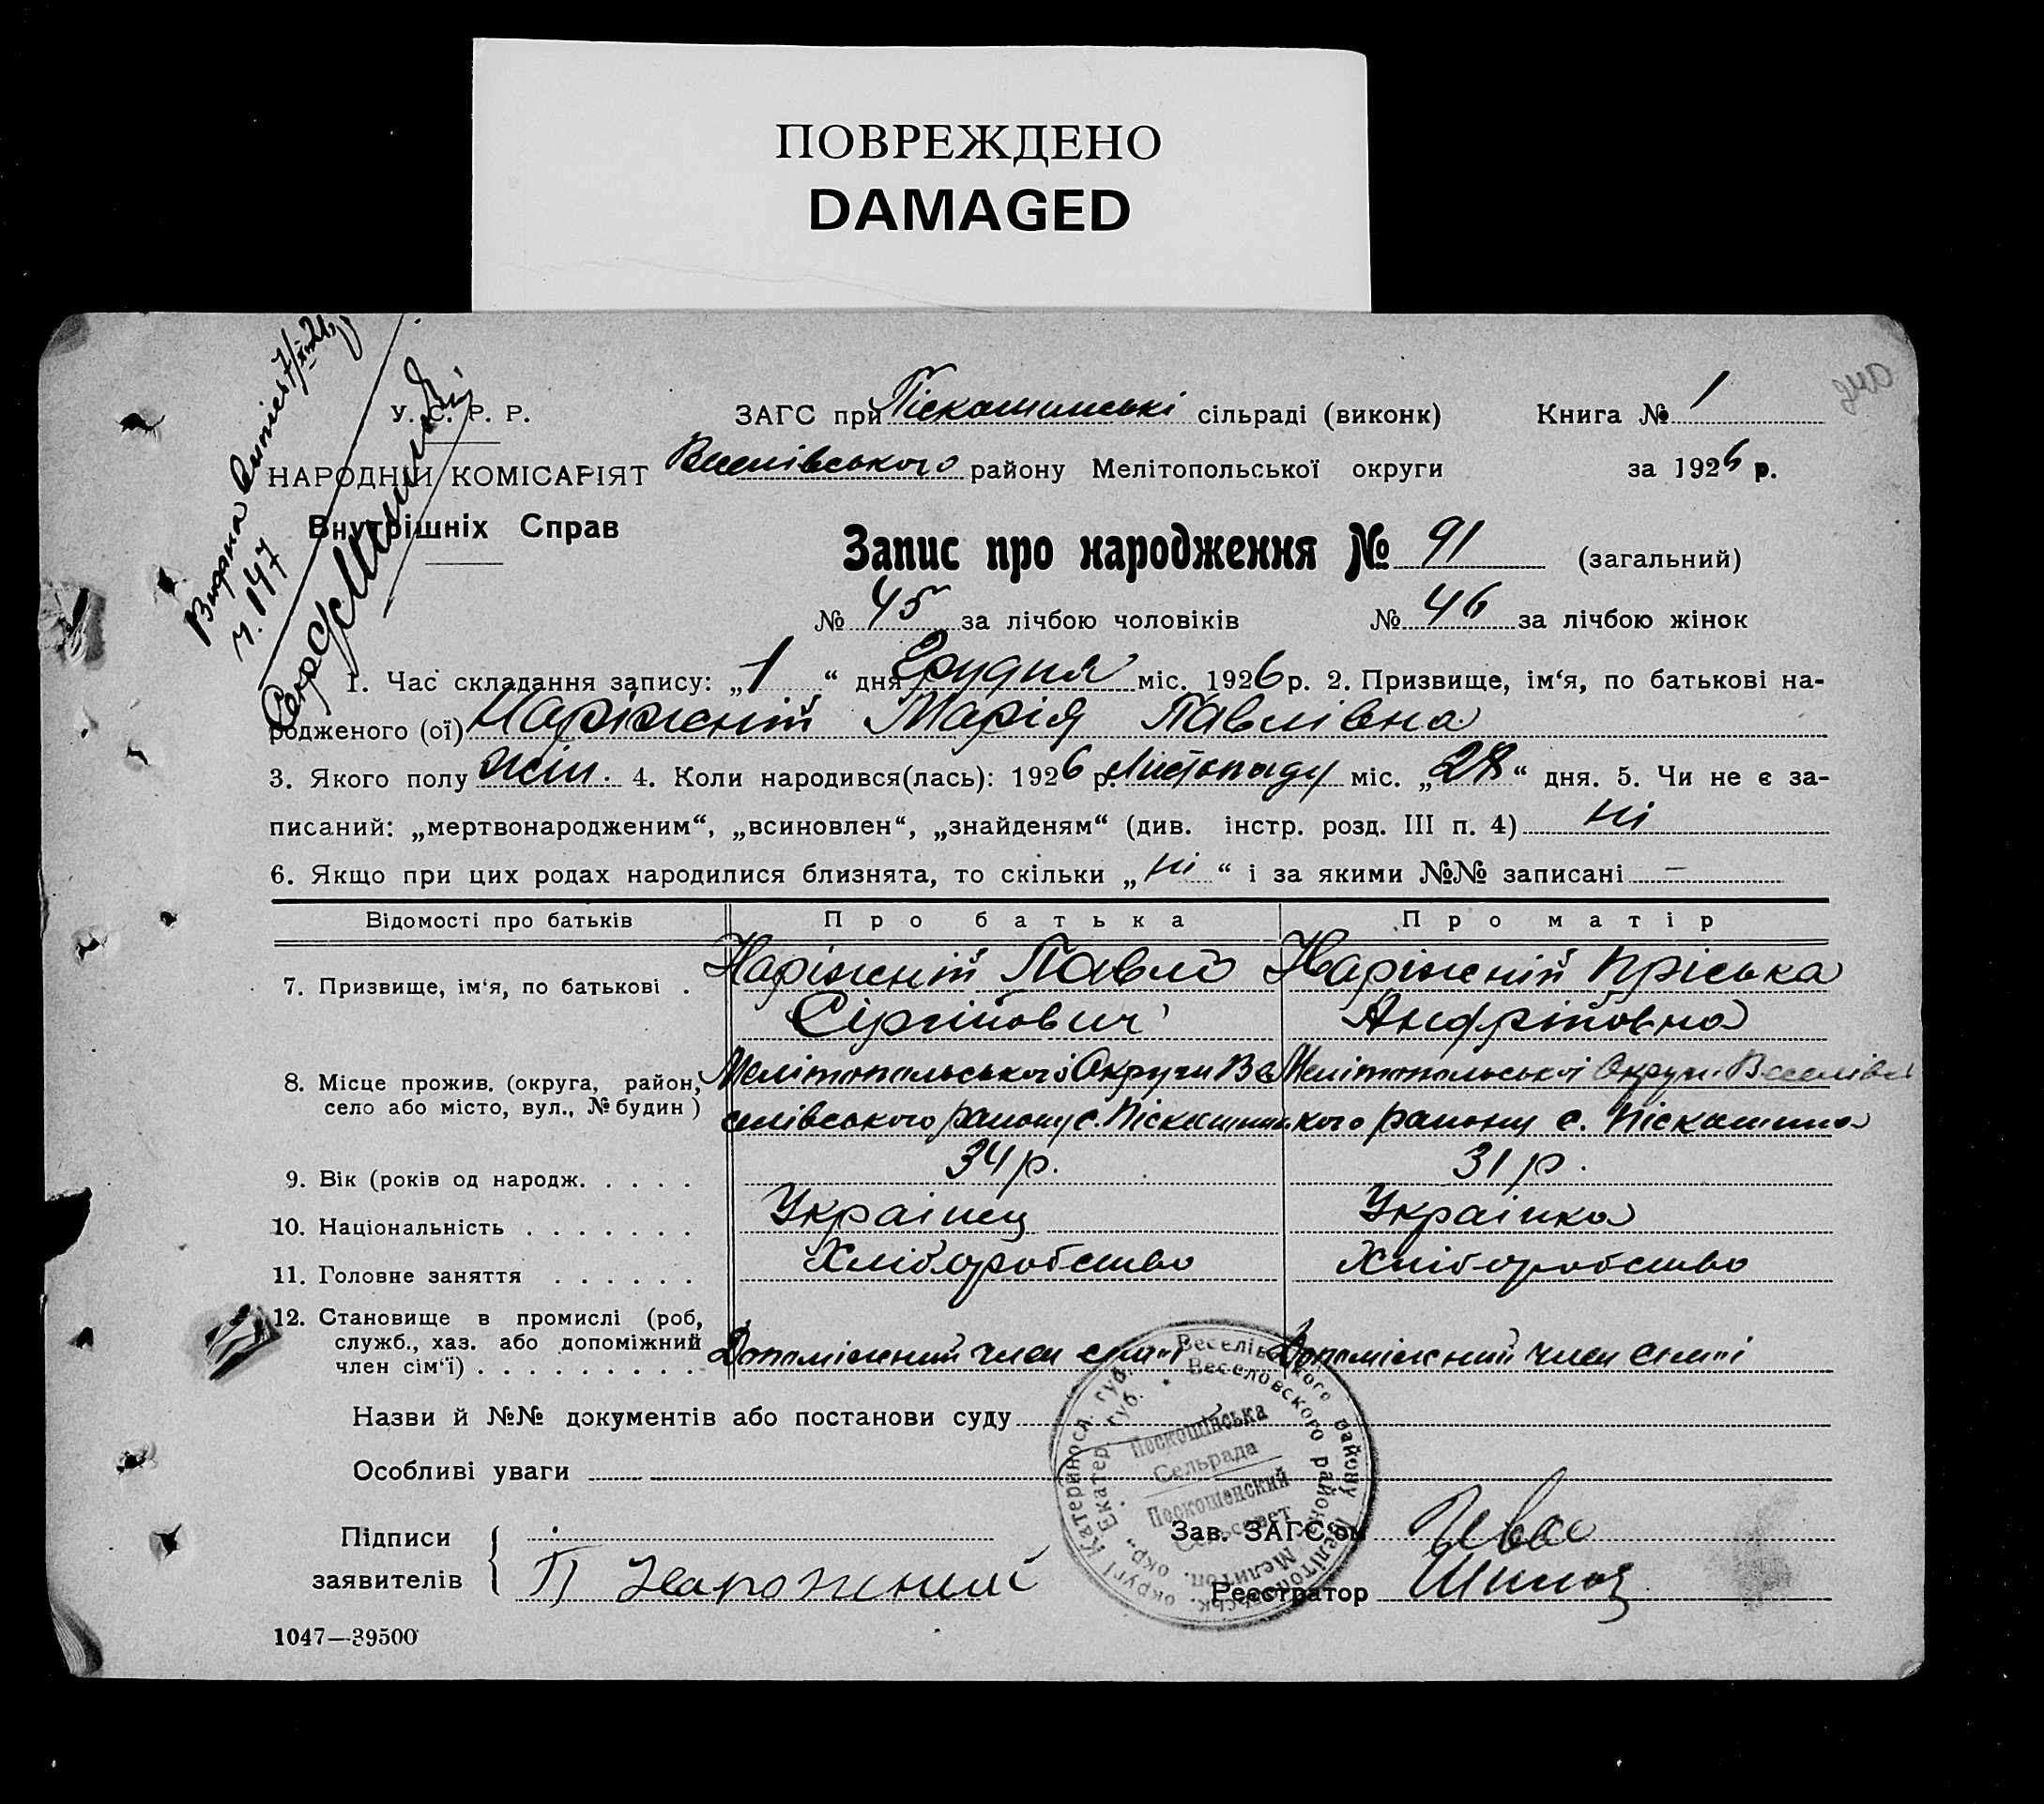 ПОВРЕЖДЕНО
DAMAGED
Видана Випись 7/
ч. 147
У. С. Р. Р.
НАРОДНІЙ КОМІСАРІЯТ
Внутрішніх Справ
ЗАГС при Піскашинські сільраді (виконк) Книга № 1
Веселівського району Мелітопольської округи за 1926 р.
Запис про народження № 91 (загальний)
№ 45 за лічбою чоловіків № 46 за лічбою жінок
1. Час складання запису: „1“ дня Грудня міс. 1926 р. 2. Призвище, ім‘я, по батькові на-
родженого (ої) Наріжній Марія Павлівна
3. Якого полу жін. 4. Коли народився(лась): 1926 р. Листопаду міс. „28“ дня. 5. Чи не є за-
писаний: „мертвонародженим“, „всиновлен“, „знайденям“ (див. інстр. розд. III п. 4) ні
6. Якщо при цих родах народилися близнята, то скільки „ні“ і за якими №№ записані —
Відомості про батьків Про батька Про матір
7. Призвище, ім‘я, по батькові . Наріжній Павло Наріжній Пріська
Сіргійович Андрійовна
8. Місце прожив. (округа, район, Мелітопольської Округи Ве Мелітопольської Округи Веселівс
село або місто, вул., № будин) селівського району с. Піскашина кого району с. Піскашина
9. Вік (років од народж. . . . . 34 р. 31 р.
10. Національність . . . . . . . Украінец Украінка
11. Головне заняття . . . . . . Хліборобство Хліборобство
12. Становище в промислі (роб,
служб., хаз. або допоміжний
член сім‘ї) . . . . . . . . . Допоміжний член сімії Допоміжний член сімії
Назви й №№ документів або постанови суду
Особливі уваги
Катеринос. губ. Веселівського району Мелітопольськ. округі
Екатер. губ. * Веселовского района Мелитоп. окр.,
Поскошінська
Сельрада
Поскошенский
Сельсовет
Підписи
заявителів П Нарожний
Зав. ЗАГС‘ом
Реєстратор
1047—39500